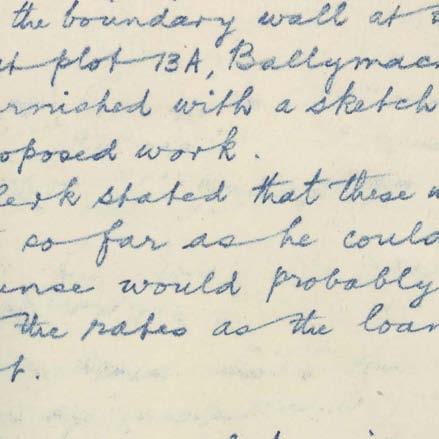 the boundary wall at
at plot 13A, Ballymac
rnished with a sketch
oposed work.
lerk stated that these
so far as he could
ense would probably
the rates as the loan
t.